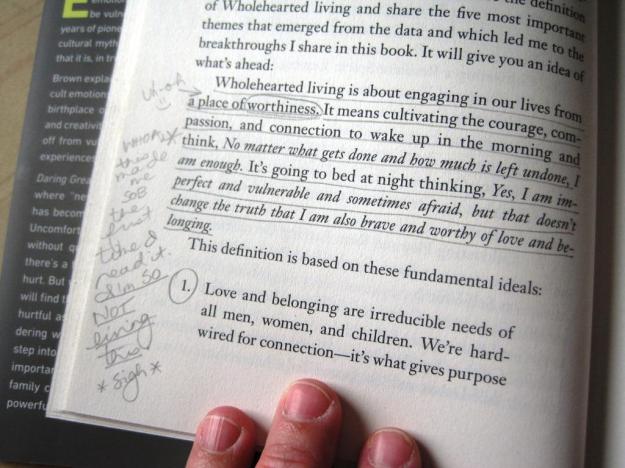 the definition
of Wholehearted living and share the five most important
themes that emerged from the data and which led me to the
breakthroughs I share in this book. It will give you an idea of
what's ahead:
Wholehearted living is about engaging in our lives from
a place of worthiness. It means cultivating the courage, com-
passion, and connection to wake up in the morning and
think, No matter what gets done and how much is left undone, I
am enough. It's going to bed at night thinking, Yes, I am im-
perfect and vulnerable and sometimes afraid, but that doesn't
change the truth that I am also brave and worthy of love and be-
longing.
This definition is based on these fundamental ideals:
1. Love and belonging are irreducible needs of
all men, women, and children. We're hard-
wired for connection—it's what gives purpose
uh-oh
WHOA*
this
made
me
SOB
the
first
time I
read it.
& I'm SO
NOT
living
this
*sigh*
E
emotion
be vuln
years of pione
cultural myth
that it is, in tr
Brown expla
cult emotion
birthplace o
and creativi
off from vu
experiences
Daring Grea
where "ne
has becom
Uncomfort
without q
there's a
hurt. But
will find t
hurtful as
dering w
step into
importan
family c
powerfu